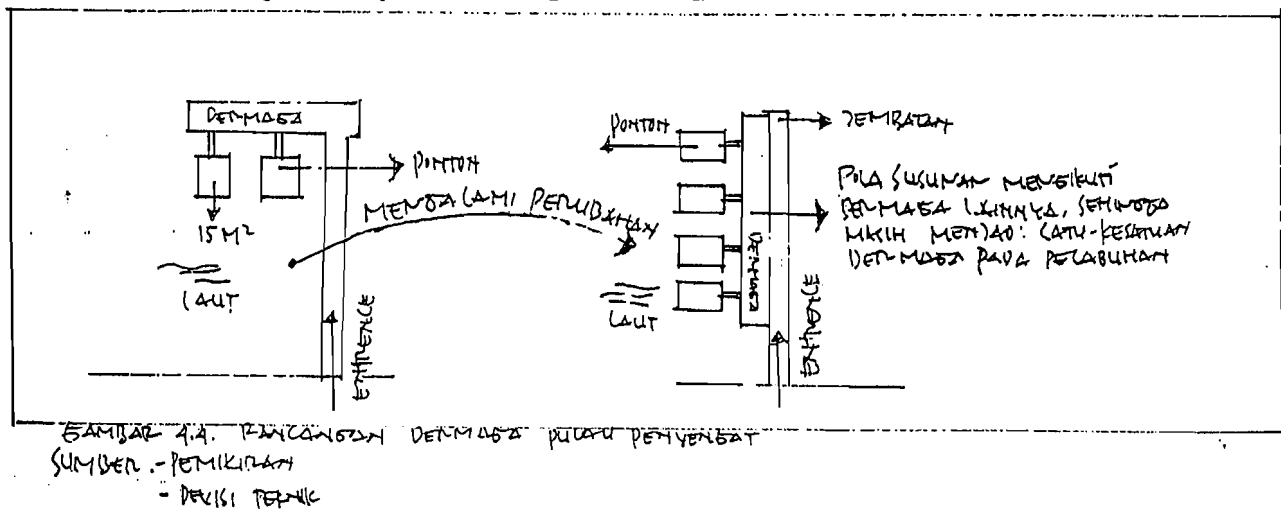 DERMAGA
PONTON
15 M²
LAUT
ENTRENCE
MENGALAMI PERUBAHAN
PONTON
JEMBATAN
POLA SUSUNAN MENGIKUTI
DERMAGA LAINNYA, SEHINGGA
MASIH MENJADI SATU-KESATUAN
DERMAGA PADA PELABUHAN
DERMAGA
LAUT
ENTRENCE
GAMBAR 4.4. RANCANGAN DERMAGA PULAU PENYENGAT
SUMBER :- PEMIKIRAN
- DEVISI TEKNIK